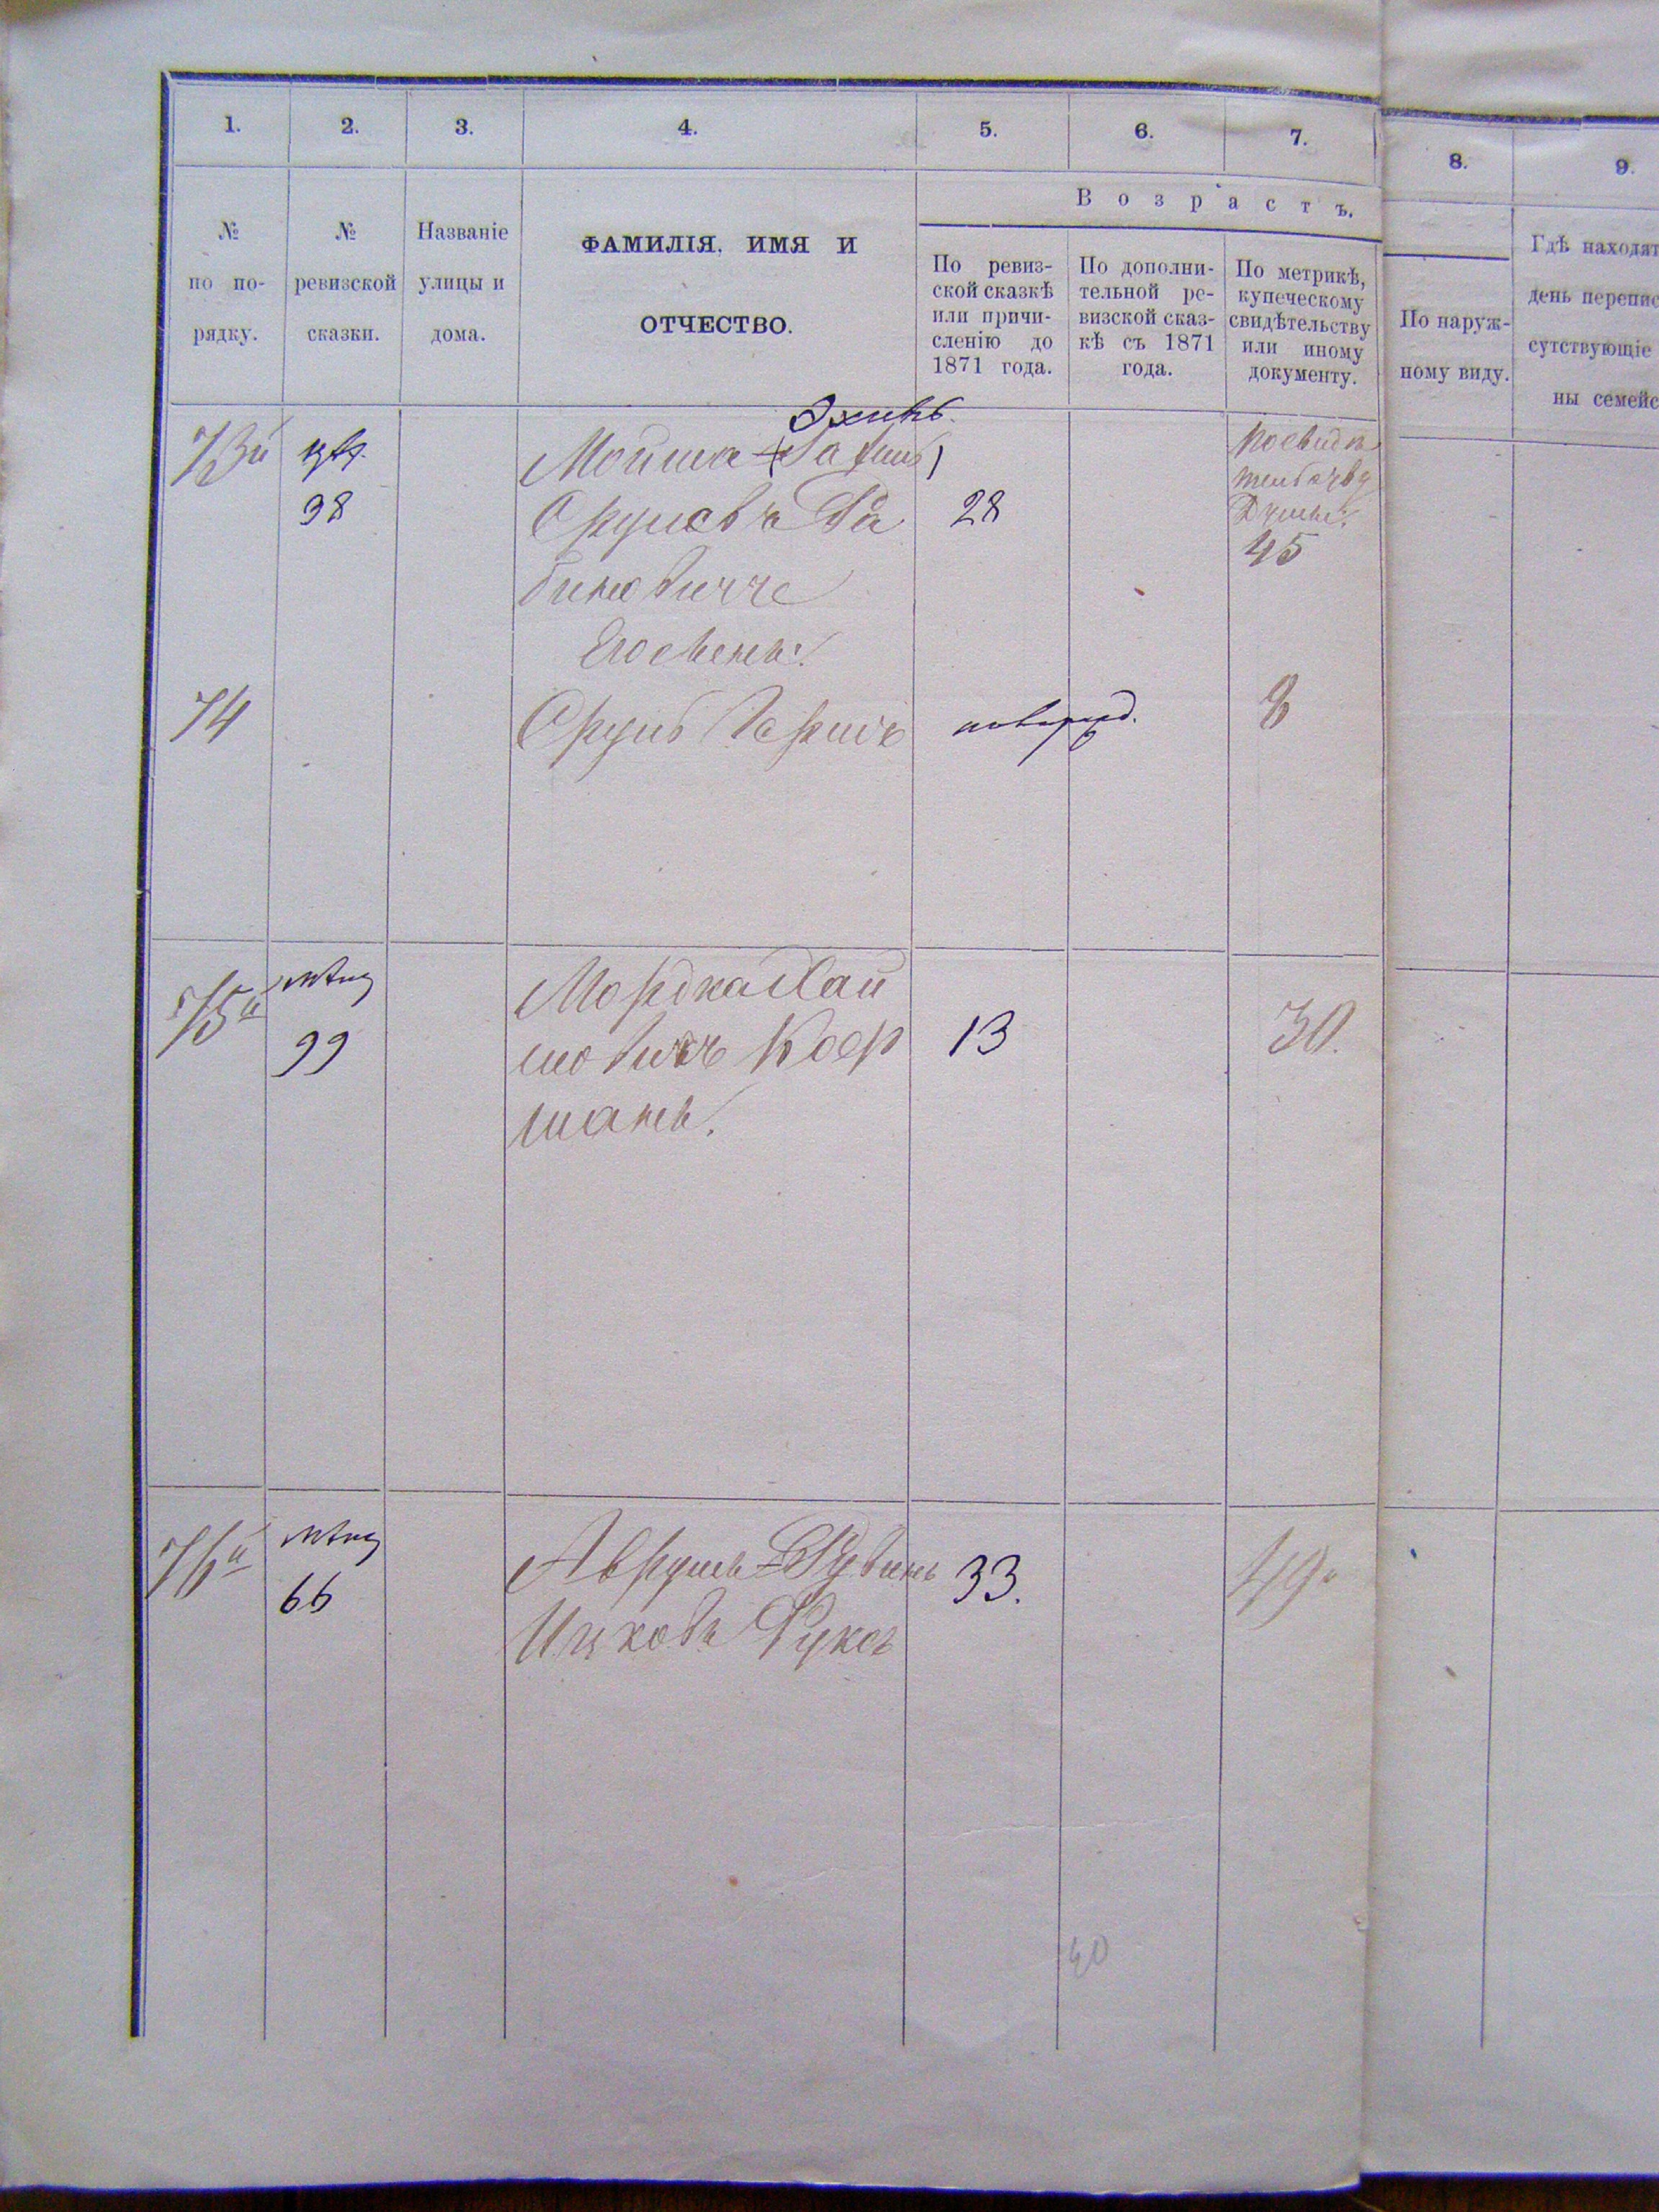 1. 2. 3. 4. 5. 6. 7. 8. 9.
Возрастъ.
№ по порядку.
№ ревизской сказки.
Названіе улицы и дома.
ФАМИЛІЯ, ИМЯ И ОТЧЕСТВО.
По ревиз-
ской сказкѣ
или причи-
сленію до
1871 года.
По дополни-
тельной ре-
визской сказ-
кѣ съ 1871
года.
По метрикѣ,
купеческому
свидѣтельству
или иному
документу.
По наруж-
ному виду.
Гдѣ находят
день перепис
сутствующіе
ны семейс
73й
Мойша
98
28
45
биновичъ
Его сынъ:
74
8
75й
Мордка Хай
99
мовичъ
13
30.
76й
Аврумъ-Рувинъ
33.
49
66
Ицковъ Фуксъ
40